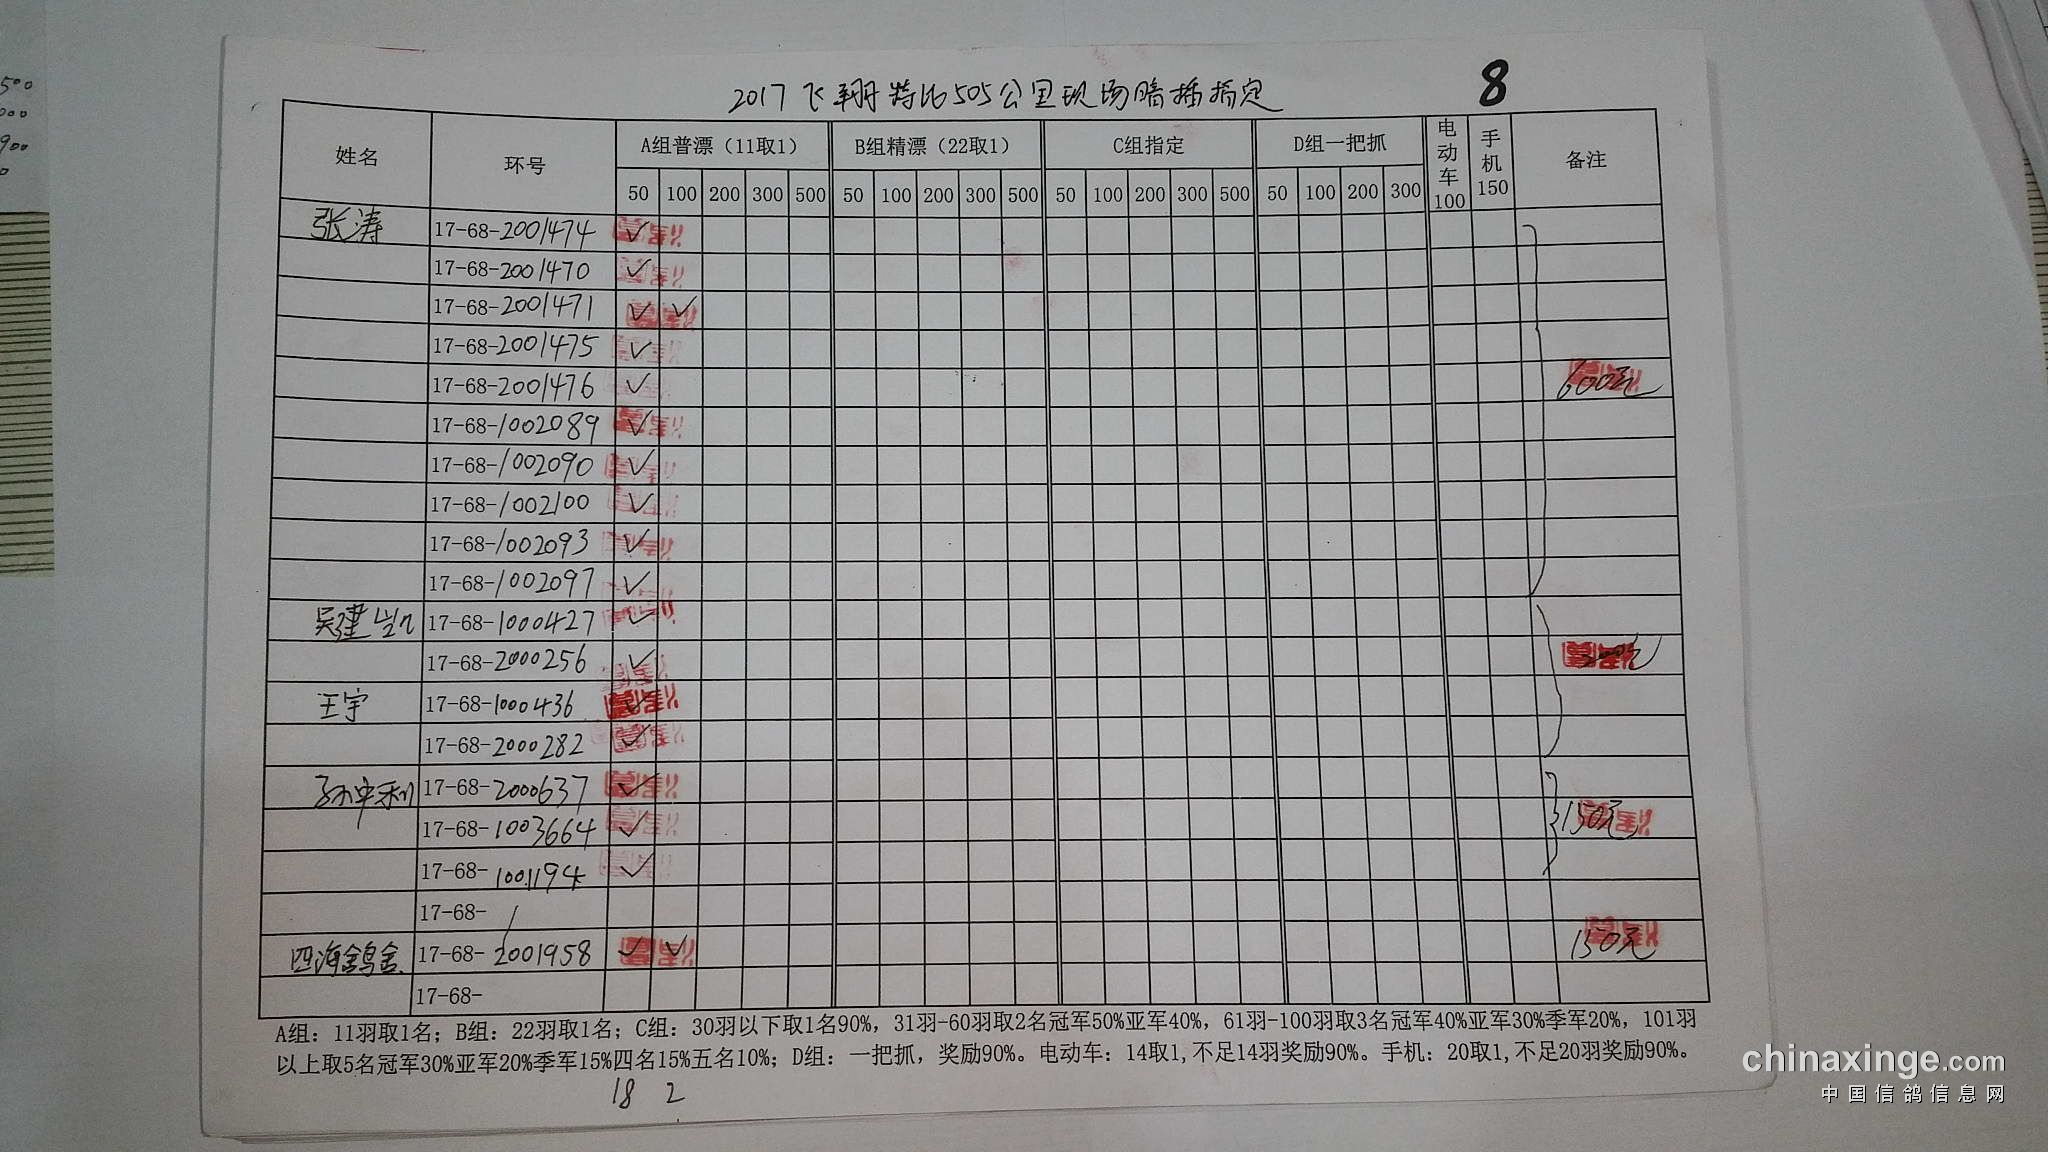 500
000
900
2017飞翔特比505公里现场暗插指定 8
姓名 环号 A组普漂（11取1） B组精漂（22取1） C组指定 D组一把抓 电动车100 手机150 备注
50 100 200 300 500 50 100 200 300 500 50 100 200 300 500 50 100 200 300
张涛 17-68-2001474 ✓
17-68-2001470 ✓
17-68-2001471 ✓ ✓
17-68-2001475 ✓
17-68-2001476 ✓ 600元
17-68-1002089 ✓
17-68-1002090 ✓
17-68-1002100 ✓
17-68-1002093 ✓
17-68-1002097 ✓
吴建 17-68-1000427 ✓
17-68-2000256 ✓ 200元
王宇 17-68-1000436 ✓
17-68-2000282 ✓
孙中利 17-68-2000637 ✓
17-68-1003664 ✓ 150元
17-68-1001194 ✓
17-68-
四海鸽舍 17-68-2001958 ✓ ✓ 150元
17-68-
A组：11羽取1名；B组：22羽取1名；C组：30羽以下取1名90%，31羽-60羽取2名冠军50%亚军40%，61羽-100羽取3名冠军40%亚军30%季军20%，101羽
以上取5名冠军30%亚军20%季军15%四名15%五名10%；D组：一把抓，奖励90%。电动车：14取1,不足14羽奖励90%。手机：20取1,不足20羽奖励90%。
18 2
chinaxinge.com
中国信鸽信息网